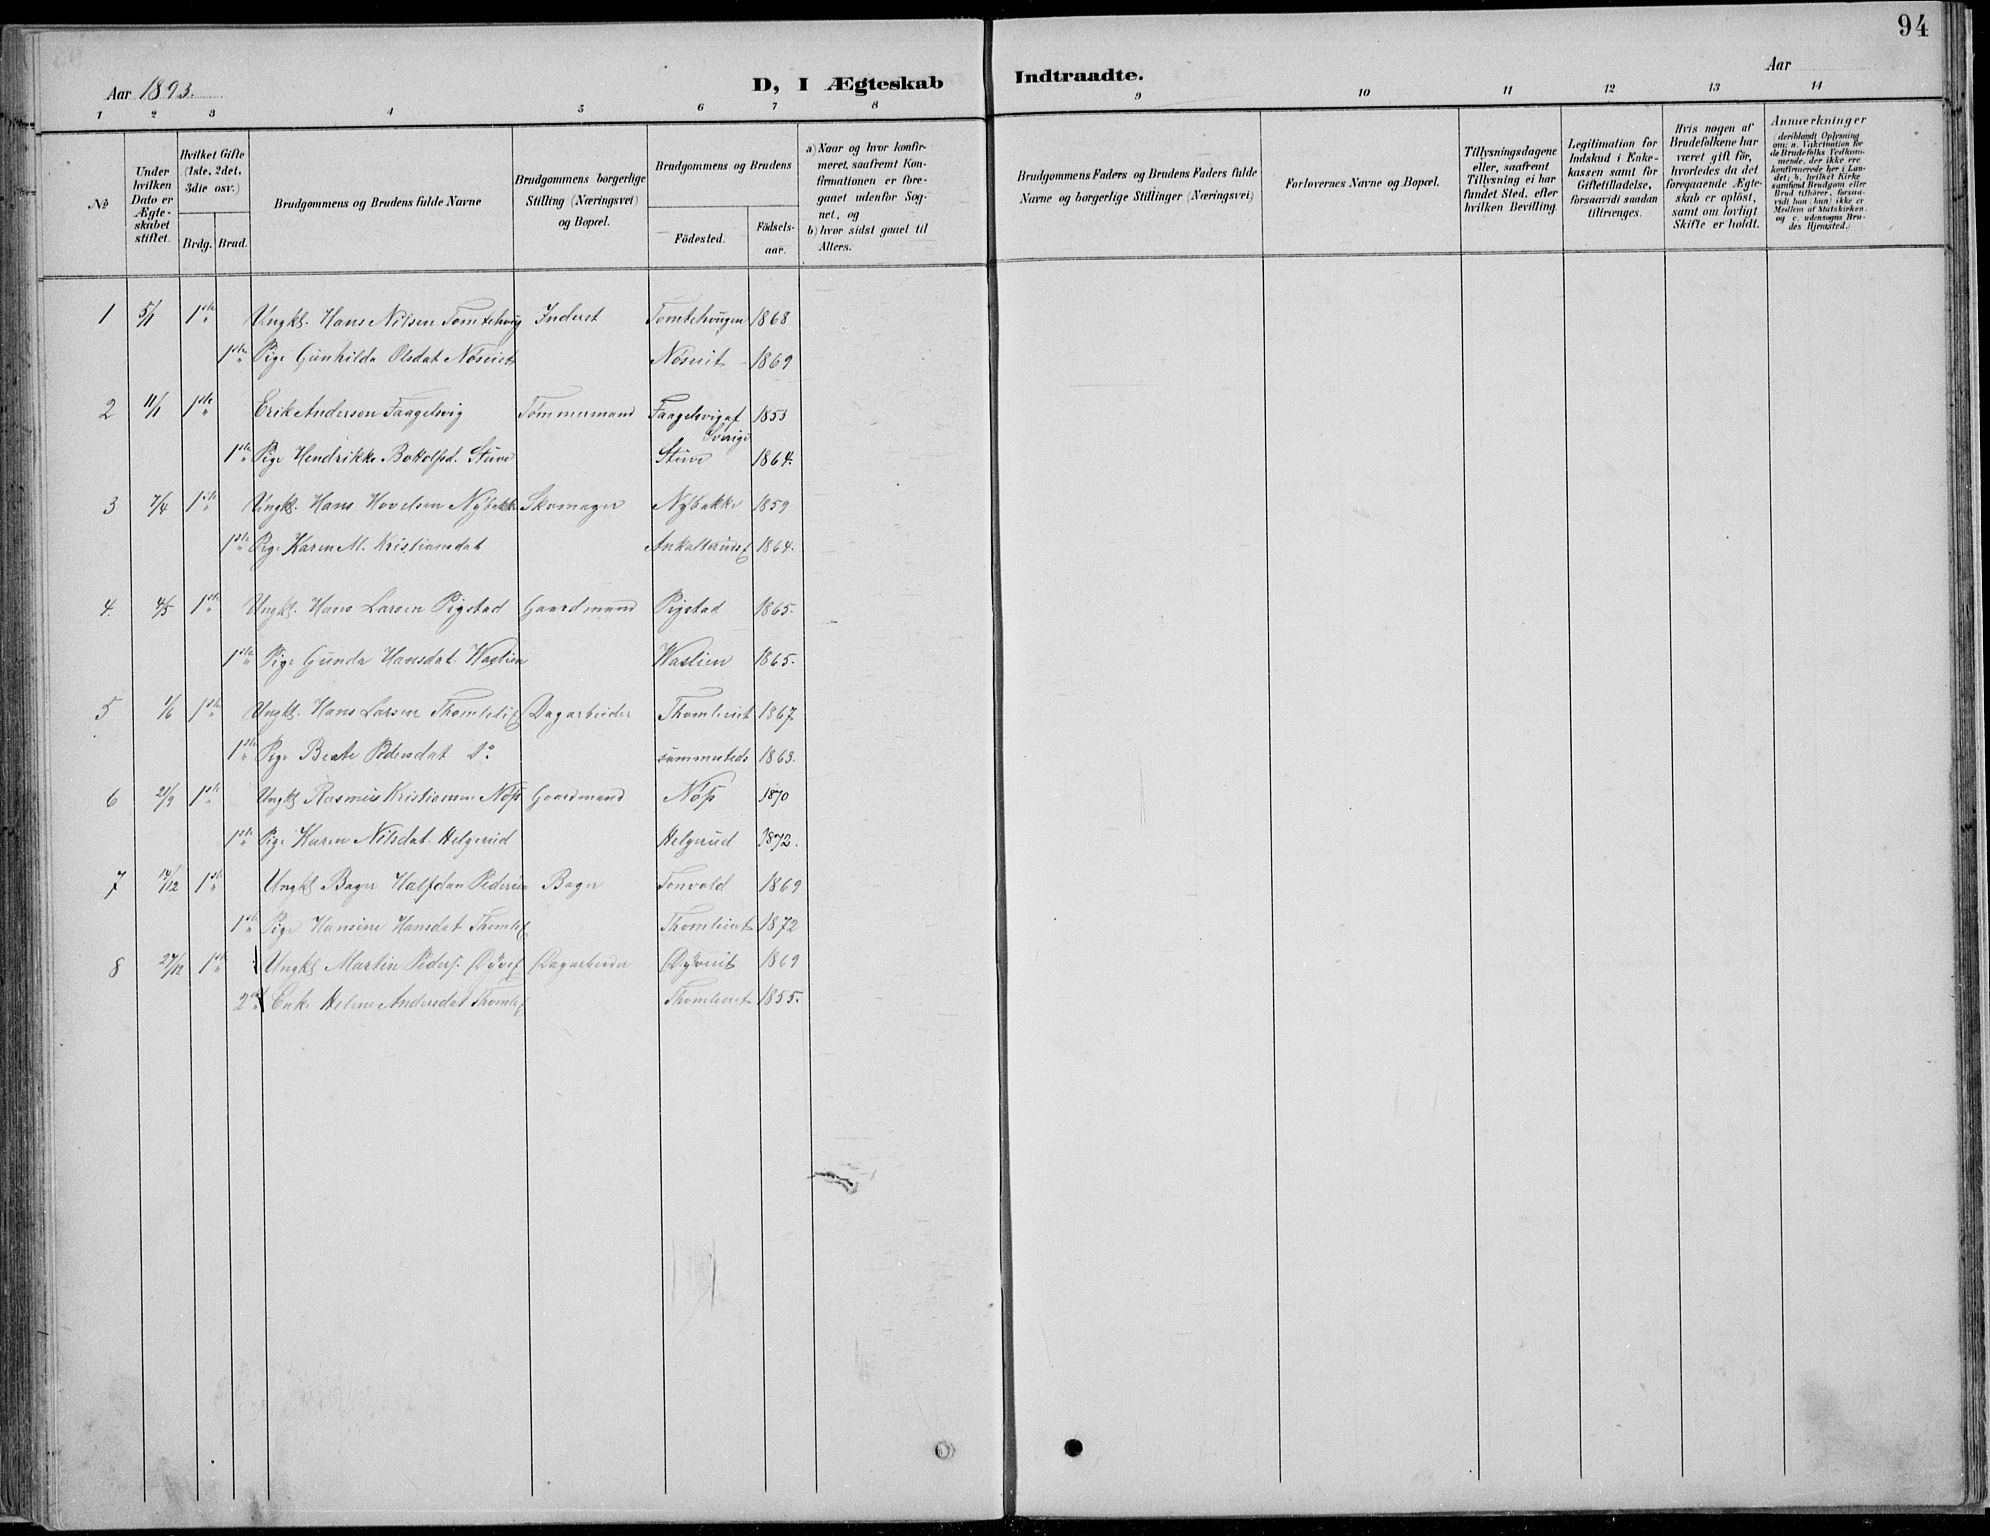 94
Aar 1893.
D, I Ægteskab Indtraadte.
Aar
1 2 3 4 5 6 7 8 9 10 11 12 13 14
No
Under hvilken Dato er Ægteskabet stiftet.
Hvilket Gifte (1ste, 2det, 3die osv.)
Brdg. Brud.
Brudgommens og Brudens fulde Navne
Brudgommens borgerlige Stilling (Næringsvei) og Bopæl.
Brudgommens og Brudens
Födested. Födselsaar.
a) Naar og hvor konfirmeret, saafremt Konfirmationen er foregaaet udenfor Sognet, og
b) hvor sidst gaaet til Alters.
Brudgommens Faders og Brudens Faders fulde Navne og borgerlige Stillinger (Næringsvei)
Forlovernes Navne og Bopæl.
Tillysningsdagene eller, saafremt Tillysning ei har fundet Sted, efter hvilken Bevilling.
Legitimation for Indskud i Enkekassen samt for Giftetilladelse, forsaavidt saadan tiltrænges.
Hvis nogen af Brudefolkene har været gift för, hvorledes da det foregaaende Ægteskab er oplöst, samt om lovligt Skifte er holdt.
Anmærkninger (deriblandt Oplysning om: a. Vakcination for de Brudefolks Vedkommende, der ikke ere konfirmerede her i Landet; b. hvilket Kirkesamfund Brudgom eller Brud tilhörer, forsaavidt han (hun) ikke er Medlem af Statskirken, og c. udensogns Brudes Hjemsted.)
1 5/1 1ste Ungkl. Hans Nilsen Tomtehoug Inderst Tomtehougen 1868
1ste Pige Gunhilda Olsdat Nøsveit Nøsveit 1869
2 11/1 1ste Erik Andersen Faagelsvig Tømmermand Faagelsvig af Sverige 1853
1ste Pige Hendrikke Bottolfsd. Stuve Stuve 1864.
3 7/4 1ste Ungkl. Hans Hovelsen Nybakke Skomager Nybakke 1859
1ste Pige Karen M. Kristiansdat 1864.
4. 4/5 1ste Ungkl. Hans Larsen Pigstad Gaardmand Pigstad 1865.
1ste Pige Gunda Hansdat Waslien Waslien 1865.
5 1/6 1ste Ungkl. Hans Larsen Dagarbeider Thomleiet 1867
1ste Pige Beate Pedersdat Do. sammesteds 1863.
6 21/9 1ste Ungkl Rasmus Kristiansen Nøss Gaardmand Nøss 1870
1ste Pige Karen Nilsdat. Helgerud Helgerud 1872.
7 14/12 1ste Ungkl Bager Halfdan Pedersen Bager Tonvold 1869
1ste Pige Hansine Hansdat Thomlei Thomleiet 1872
8 27/12 1ste Ungkl Martin Peders. Dagarbeider 1869
2den Enke Helene Andersdat Thomlei Thomleiet 1855.